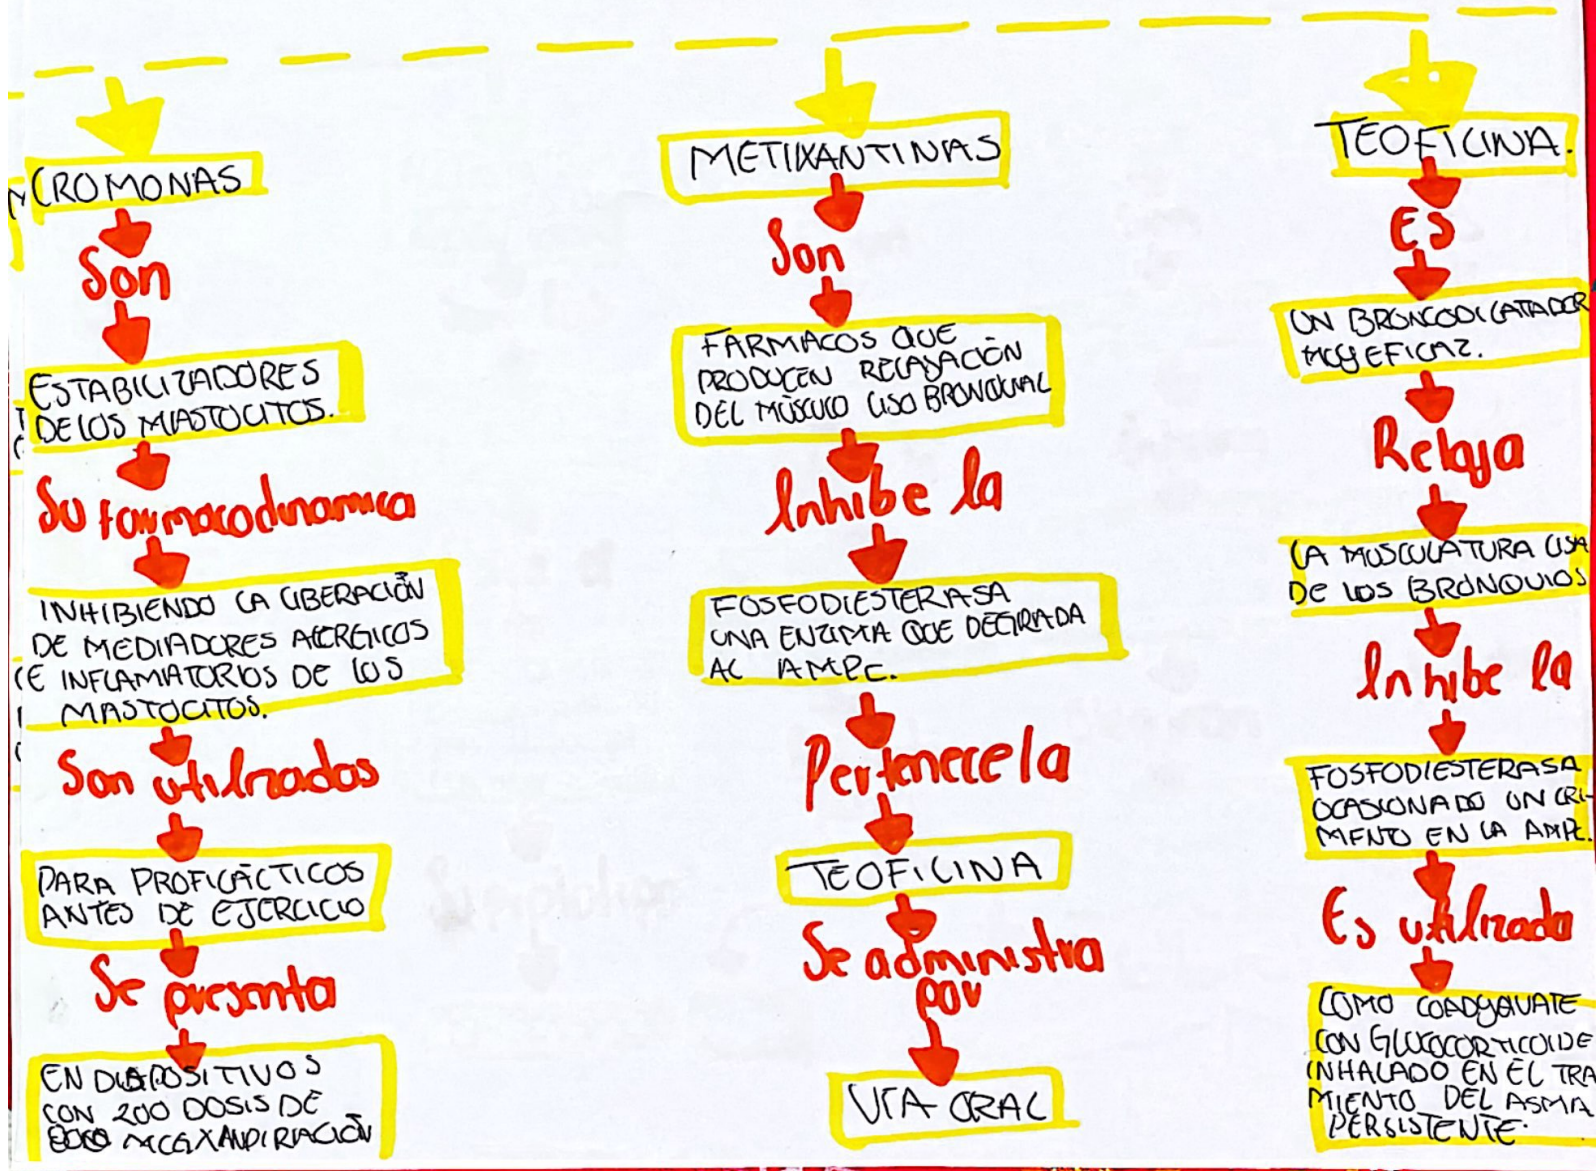 CROMONAS
Son
ESTABILIZADORES
DE LOS MASTOCITOS.
Su farmacodinamica
INHIBIENDO LA LIBERACIÓN
DE MEDIADORES ALERGICOS
E INFLAMATORIOS DE LOS
MASTOCITOS.
Son utilizados
PARA PROFILÁCTICOS
ANTES DE EJERCICIO
Se presenta
EN DISPOSITIVOS
CON 200 DOSIS DE
METIXANTINAS
Son
FARMACOS QUE
PRODUCEN RELAJACIÓN
DEL MÚSCULO LISO BRONQUIAL
Inhibe la
FOSFODIESTERASA
UNA ENZIMA QUE DEGRADA
AL AMPC.
Pertenece la
TEOFILINA
Se administra
por
VIA ORAL
TEOFICINA.
ES
UN BRONCODILATADOR
MUY EFICAZ.
Relaja
LA MUSCULATURA LISA
DE LOS BRONQUIOS
Inhibe la
FOSFODIESTERASA
OCASIONADO UN CRI-
MENTO EN LA AMPC.
Es utilizada
COMO COADYUVATE
CON GLUCOCORTICOIDE
INHALADO EN EL TRA
MIENTO DEL ASMA
PERSISTENTE.